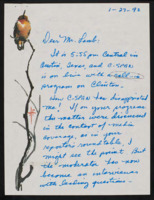 1-29-92
Dear Mr. Lamb:
It is 5:55pm Central in
Austin, Texas, and C-SPAN
is on live with a call-in
program on Clinton.
Now C-SPAN has disappointed
me! If on your program
the matter were discussed
in the context of media
coverage, as in your
reporters roundtable, I
might see the point. But
the moderator has now
become an interviewer
with leading questions.